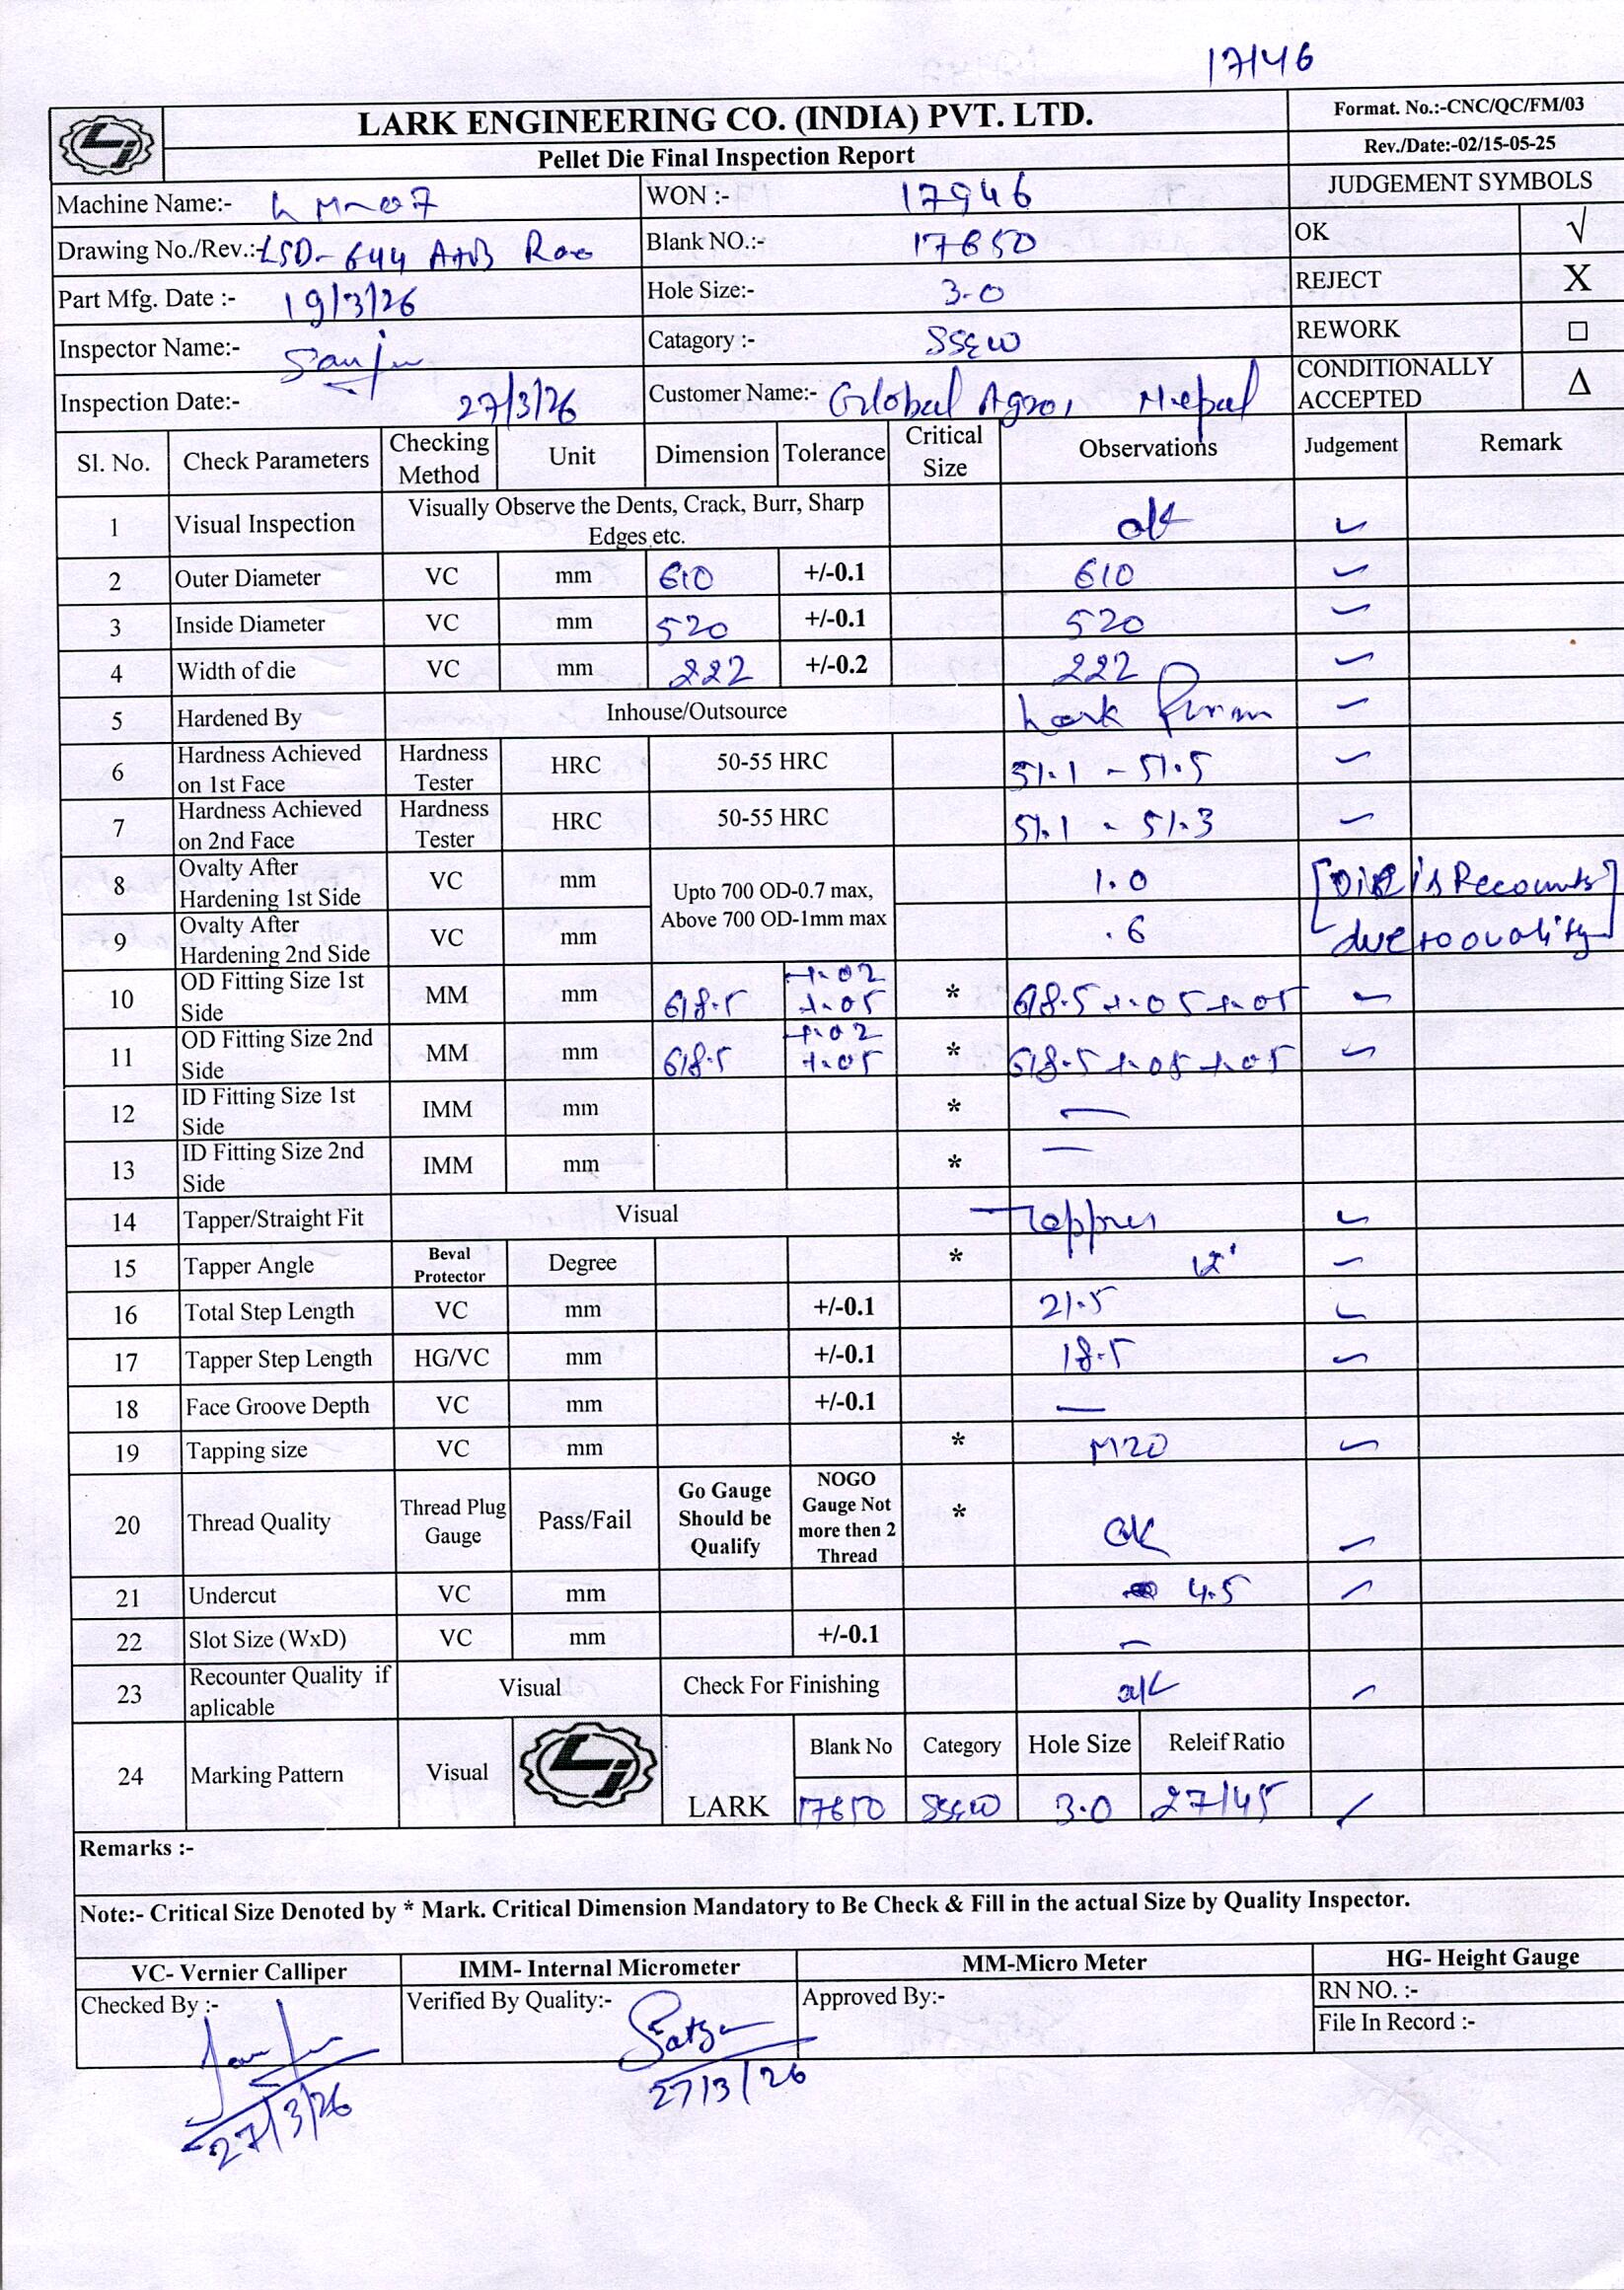 17146
LARK ENGINEERING CO. (INDIA) PVT. LTD.
Pellet Die Final Inspection Report
Format. No.:-CNC/QC/FM/03
Rev./Date:-02/15-05-25
Machine Name:- WON :- 17946 JUDGEMENT SYMBOLS
Drawing No./Rev.:- LSD- 644 A+B R00 Blank NO.:- 17650 OK √
Part Mfg. Date :- 19/3/26 Hole Size:- 3.0 REJECT X
Inspector Name:- Sanju Catagory :- SSEW REWORK □
Inspection Date:- 27/3/26 Customer Name:- Global Agro, Nepal CONDITIONALLY ACCEPTED Δ
Sl. No. Check Parameters Checking Method Unit Dimension Tolerance Critical Size Observations Judgement Remark
1 Visual Inspection Visually Observe the Dents, Crack, Burr, Sharp Edges etc. ok ✓
2 Outer Diameter VC mm 610 +/-0.1 610 ✓
3 Inside Diameter VC mm 520 +/-0.1 520 ✓
4 Width of die VC mm 222 +/-0.2 222 ✓
5 Hardened By Inhouse/Outsource Lark ✓
6 Hardness Achieved on 1st Face Hardness Tester HRC 50-55 HRC 51.1 - 51.5 ✓
7 Hardness Achieved on 2nd Face Hardness Tester HRC 50-55 HRC 51.1 - 51.3 ✓
8 Ovalty After Hardening 1st Side VC mm Upto 700 OD-0.7 max, Above 700 OD-1mm max 1.0 [Die is Recounts
9 Ovalty After Hardening 2nd Side VC mm .6 due to ovality]
10 OD Fitting Size 1st Side MM mm 618.5 +.02 +.05 * 618.5 +.05 +.05 ✓
11 OD Fitting Size 2nd Side MM mm 618.5 +.02 +.05 * 618.5 +.05 +.05 ✓
12 ID Fitting Size 1st Side IMM mm * —
13 ID Fitting Size 2nd Side IMM mm * —
14 Tapper/Straight Fit Visual Tapper ✓
15 Tapper Angle Beval Protector Degree * 12° ✓
16 Total Step Length VC mm +/-0.1 21.5 ✓
17 Tapper Step Length HG/VC mm +/-0.1 18.5 ✓
18 Face Groove Depth VC mm +/-0.1 —
19 Tapping size VC mm * M20 ✓
20 Thread Quality Thread Plug Gauge Pass/Fail Go Gauge Should be Qualify NOGO Gauge Not more then 2 Thread * OK ✓
21 Undercut VC mm 4.5 ✓
22 Slot Size (WxD) VC mm +/-0.1 —
23 Recounter Quality if aplicable Visual Check For Finishing ok ✓
24 Marking Pattern Visual LARK Blank No Category Hole Size Releif Ratio
17650 SSEW 3.0 27/45 ✓
Remarks :-
Note:- Critical Size Denoted by * Mark. Critical Dimension Mandatory to Be Check & Fill in the actual Size by Quality Inspector.
VC- Vernier Calliper IMM- Internal Micrometer MM-Micro Meter HG- Height Gauge
Checked By :- Sanju Verified By Quality:- Approved By:- RN NO. :-
File In Record :-
27/3/26 27/3/26